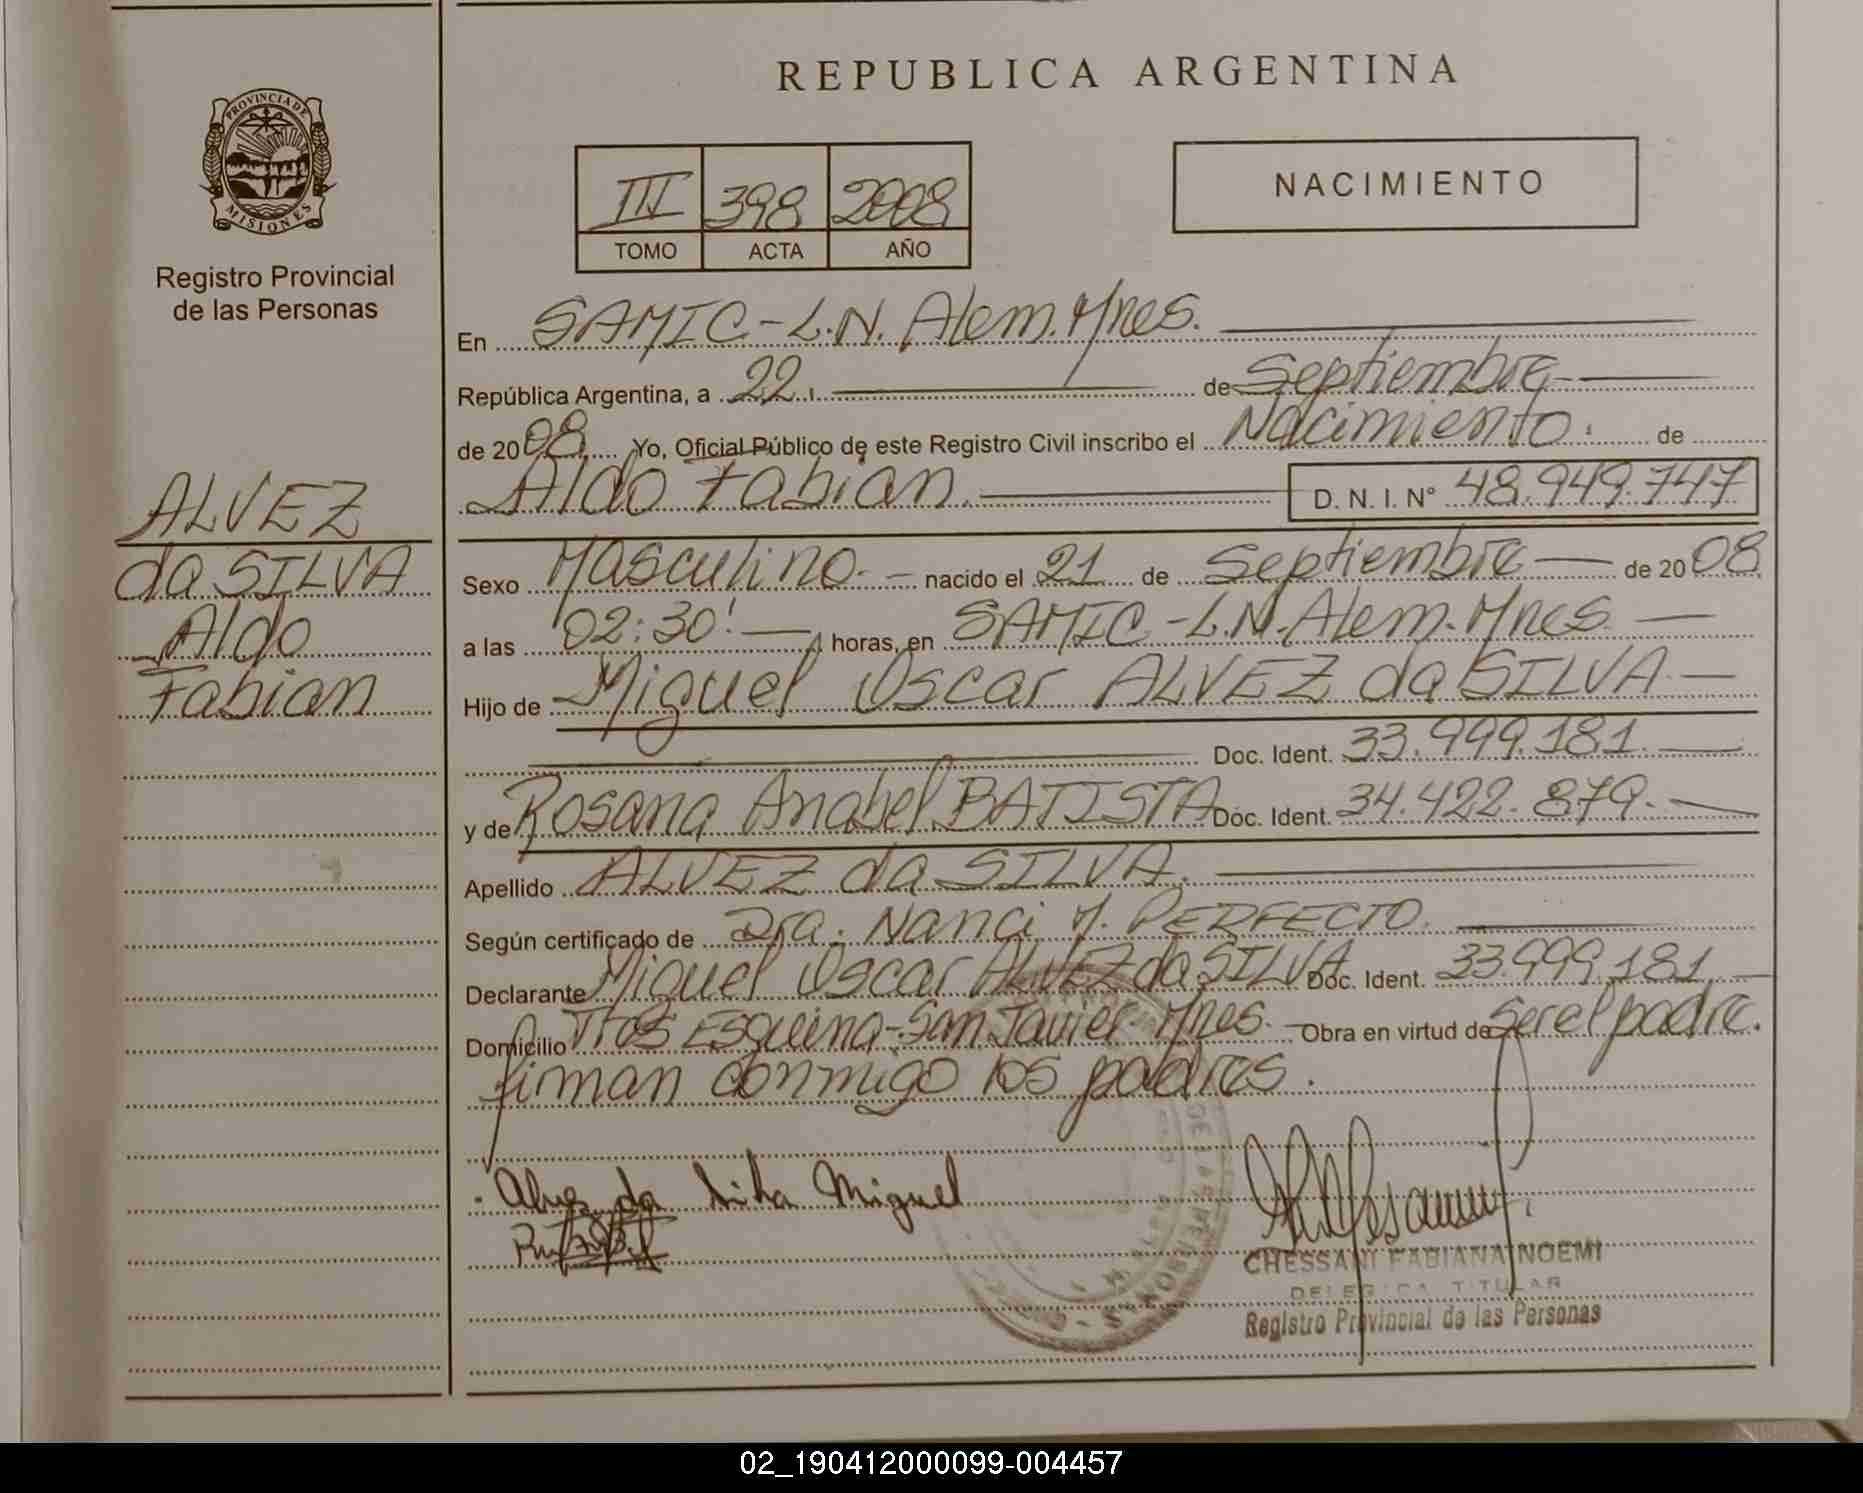 REPUBLICA ARGENTINA
PROVINCIA DE
MISIONES
Registro Provincial
de las Personas
III 398 2008
TOMO ACTA AÑO
NACIMIENTO
ALVEZ
da SILVA
Aldo
Fabian
En SAMIC-L.N. Alem. Mnes.
República Argentina, a 22 de Septiembre
de 2008 Yo, Oficial Público de este Registro Civil inscribo el Nacimiento. de
Aldo Fabian. D. N. I. N° 48.949.747
Sexo Masculino. nacido el 21 de Septiembre de 2008
a las 02:30' horas, en SAMIC-L.N. Alem. Mnes
Hijo de Miguel Oscar ALVEZ da SILVA
Doc. Ident. 33.999.181.
y de Rosana Anabel BATISTA Doc. Ident. 34.422.879.
Apellido ALVEZ da SILVA.
Según certificado de Dra. Nanci M. PERFECTO.
Declarante Miguel Oscar ALVEZ da SILVA Doc. Ident. 33.999.181
Domicilio Tres Esquina-San Javier. Mnes. Obra en virtud de Ser el padre.
firman conmigo los padres.
Alvez da Silva Miguel
CHESSANI FABIANA NOEMI
DELEGADA TITULAR
Registro Provincial de las Personas
02_190412000099-004457